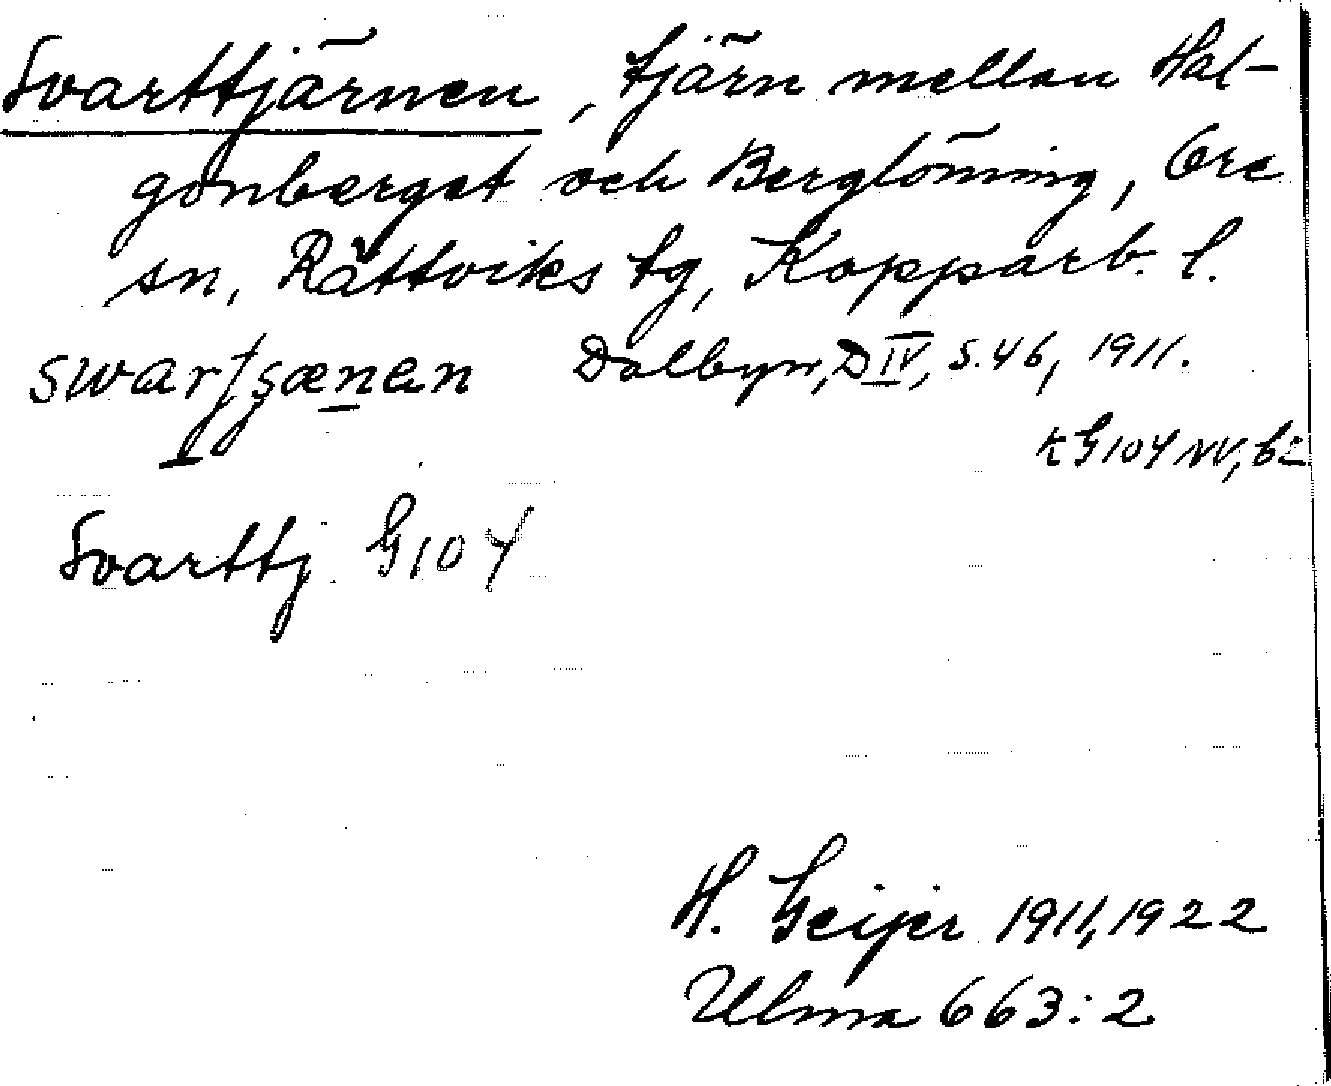 Svarttjärnen, tjärn mellan Hal-
gonberget och Berglöning, Ore
sn, Rättviks tg, Kopparb. l.
Dalbyn, D IV, s. 46, 1911.
K G104 NV, b2
Svarttj G104
H. Geijer 1911, 1922
Ulma 663:2